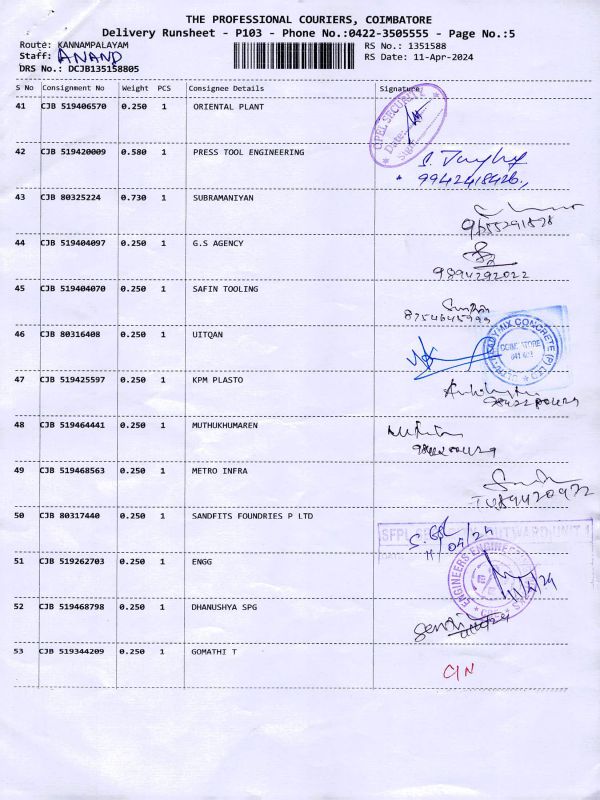 THE PROFESSIONAL COURIERS, COIMBATORE
Delivery Runsheet - P103 - Phone No.:0422-3505555 - Page No.:5
Route: KANNAMPALAYAM RS No.: 1351588
Staff: ANAND RS Date: 11-Apr-2024
DRS No.: DCJB135158805
S No Consignment No Weight PCS Consignee Details Signature
41 CJB 519406570 0.250 1 ORIENTAL PLANT
SECURITY
Date:
Sign:
42 CJB 519420009 0.580 1 PRESS TOOL ENGINEERING
9942418426
43 CJB 80325224 0.730 1 SUBRAMANIYAN
9655291878
44 CJB 519404097 0.250 1 G.S AGENCY
9894292022
45 CJB 519404070 0.250 1 SAFIN TOOLING
8754645999
46 CJB 80316408 0.250 1 UITQAN
COIMBATORE
47 CJB 519425597 0.250 1 KPM PLASTO
48 CJB 519464441 0.250 1 MUTHUKHUMAREN
49 CJB 519468563 0.250 1 METRO INFRA
50 CJB 80317440 0.250 1 SANDFITS FOUNDRIES P LTD
11/04/24
51 CJB 519262703 0.250 1 ENGG
ENGINEERS
52 CJB 519468798 0.250 1 DHANUSHYA SPG
53 CJB 519344209 0.250 1 GOMATHI T
C/N